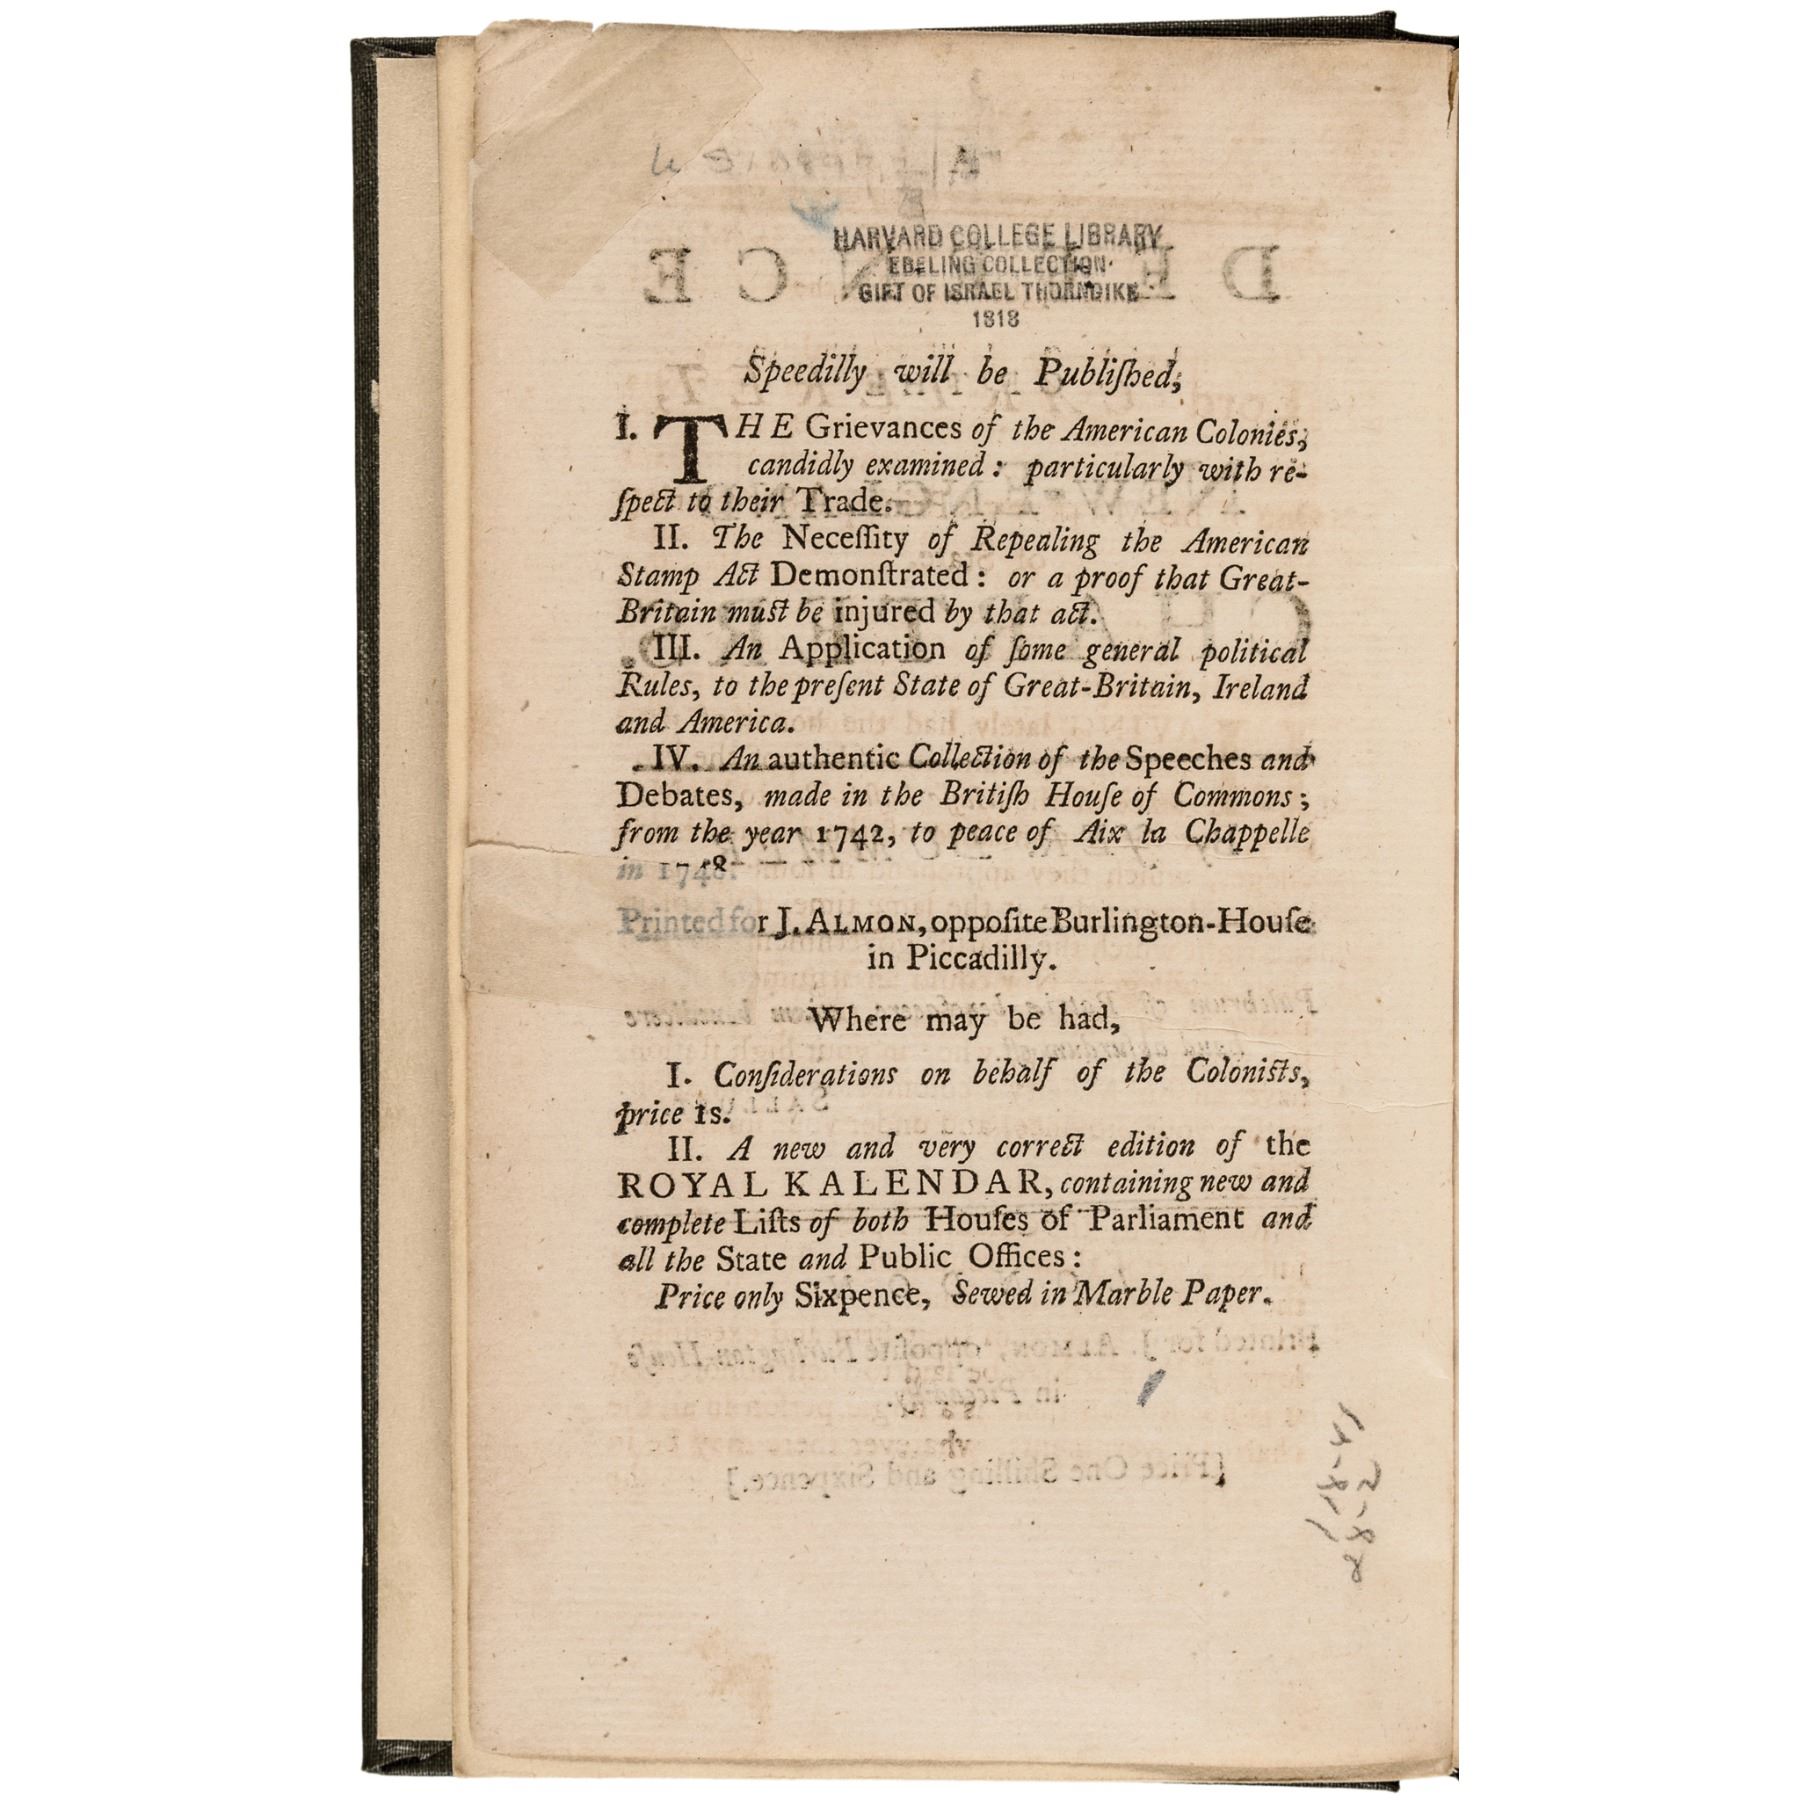 HARVARD COLLEGE LIBRARY
EBELING COLLECTION
GIFT OF ISRAEL THORNDIKE
1818
Speedilly will be Publiſhed,
I. THE Grievances of the American Colonies,
candidly examined: particularly with re-
ſpect to their Trade.
II. The Neceſſity of Repealing the American
Stamp Act Demonſtrated: or a proof that Great-
Britain must be injured by that act.
III. An Application of ſome general political
Rules, to the preſent State of Great-Britain, Ireland
and America.
IV. An authentic Collection of the Speeches and
Debates, made in the Britiſh Houſe of Commons;
from the year 1742, to peace of Aix la Chappelle
in 1748.
Printed for J. ALMON, oppoſite Burlington-Houſe
in Piccadilly.
Where may be had,
I. Conſiderations on behalf of the Colonists,
price 1s.
II. A new and very correct edition of the
ROYAL KALENDAR, containing new and
complete Liſts of both Houſes of Parliament and
all the State and Public Offices:
Price only Sixpence, Sewed in Marble Paper.